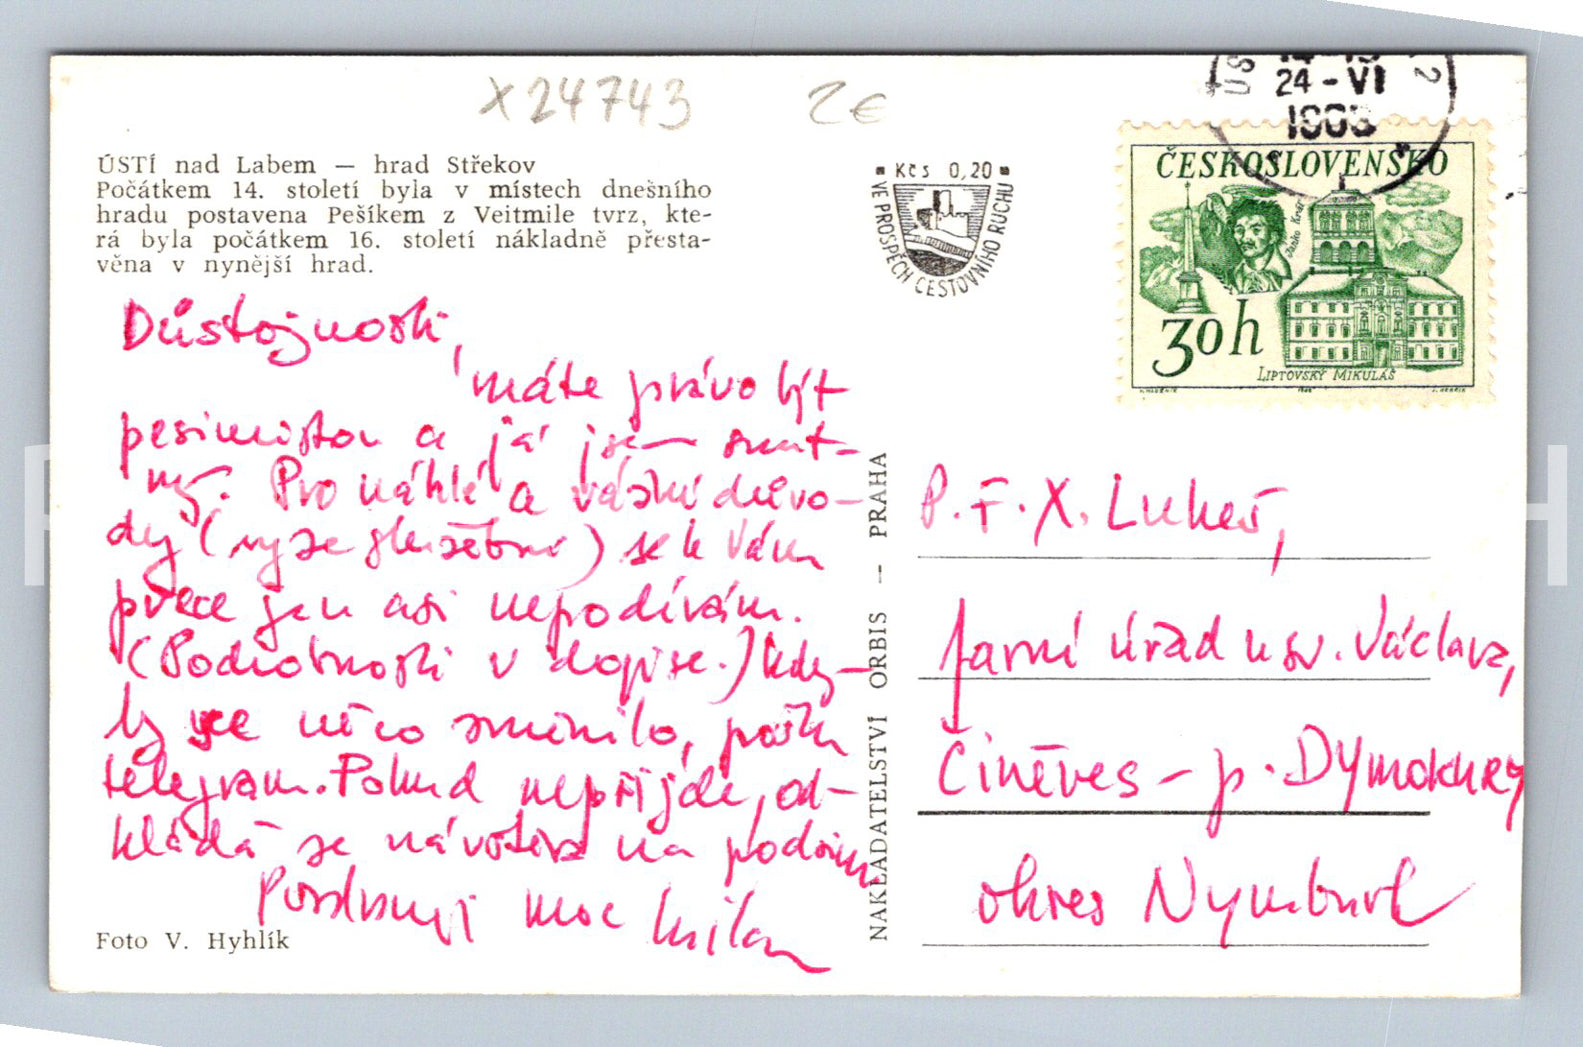 X24743
2€
ÚSTÍ nad Labem — hrad Střekov
Počátkem 14. století byla v místech dnešního
hradu postavena Pešíkem z Veitmile tvrz, kte-
rá byla počátkem 16. století nákladně přesta-
věna v nynější hrad.
Důstojnosti,
máte právo být
pesimistou a já jsem smut-
ný. Pro náhlé a vážné důvo-
dy (ryze služební) se k Vám
přece jen asi nepodívám.
(Podrobnosti v dopise.) Kdy-
by se něco změnilo, pošlu
telegram. Pokud nepřijde, od-
kládá se návštěva na podzim
Pozdravuji moc Milan
Foto V. Hyhlík
Kčs 0,20
VE PROSPĚCH CESTOVNÍHO RUCHU
NAKLADATELSTVÍ ORBIS — PRAHA
24-VI
ČESKOSLOVENSKO
Janko Kráľ
30h
LIPTOVSKÝ MIKULÁŠ
P. F. X. Lukeš,
farní úřad u sv. Václava,
Činěves - p. Dymokury
okres Nymburk